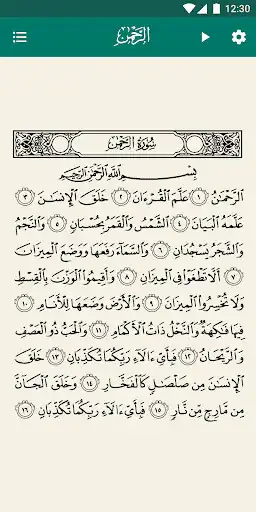 12:30
الرحمن
سُورَةُ الرَّحْمَٰن
بِسْمِ اللَّهِ الرَّحْمَٰنِ الرَّحِيمِ
الرَّحْمَٰنُ ١ عَلَّمَ الْقُرْءَانَ ٢ خَلَقَ الْإِنسَٰنَ ٣
عَلَّمَهُ الْبَيَانَ ٤ الشَّمْسُ وَالْقَمَرُ بِحُسْبَانٍ ٥ وَالنَّجْمُ
وَالشَّجَرُ يَسْجُدَانِ ٦ وَالسَّمَآءَ رَفَعَهَا وَوَضَعَ الْمِيزَانَ
٧ أَلَّا تَطْغَوْا فِي الْمِيزَانِ ٨ وَأَقِيمُوا الْوَزْنَ بِالْقِسْطِ
وَلَا تُخْسِرُوا الْمِيزَانَ ٩ وَالْأَرْضَ وَضَعَهَا لِلْأَنَامِ ١٠
فِيهَا فَٰكِهَةٌ وَالنَّخْلُ ذَاتُ الْأَكْمَامِ ١١ وَالْحَبُّ ذُو الْعَصْفِ
وَالرَّيْحَانُ ١٢ فَبِأَيِّ ءَالَآءِ رَبِّكُمَا تُكَذِّبَانِ ١٣ خَلَقَ
الْإِنسَٰنَ مِن صَلْصَٰلٍ كَالْفَخَّارِ ١٤ وَخَلَقَ الْجَآنَّ
مِن مَّارِجٍ مِّن نَّارٍ ١٥ فَبِأَيِّ ءَالَآءِ رَبِّكُمَا تُكَذِّبَانِ ١٦